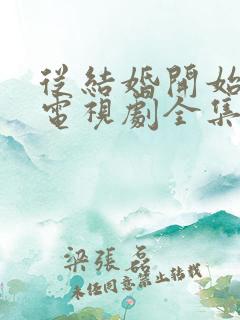 從結婚開始
電視劇全集
梁張磊
未經同意禁止轉載